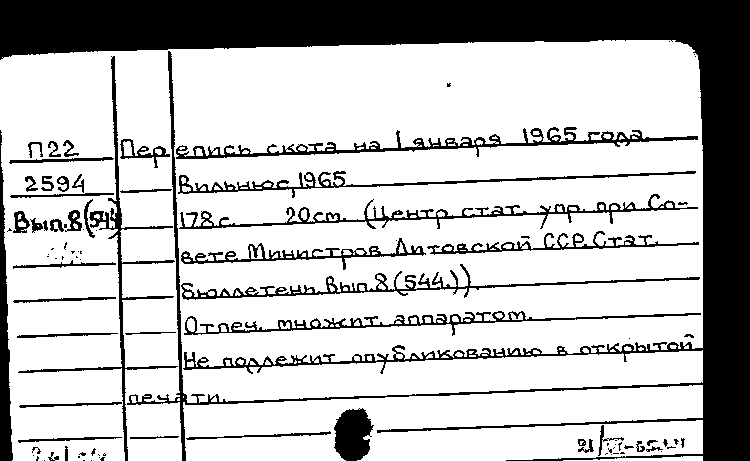 П22 Перепись скота на 1 января 1965 года.
2594 Вильнюс, 1965
Вып.8(544) 178 с. 20 см. (Центр. стат. упр. при Со-
вете Министров Литовской ССР. Стат.
бюллетень. Вып. 8 (544.)).
Отпеч. множит. аппаратом.
Не подлежит опубликованию в открытой
печати.